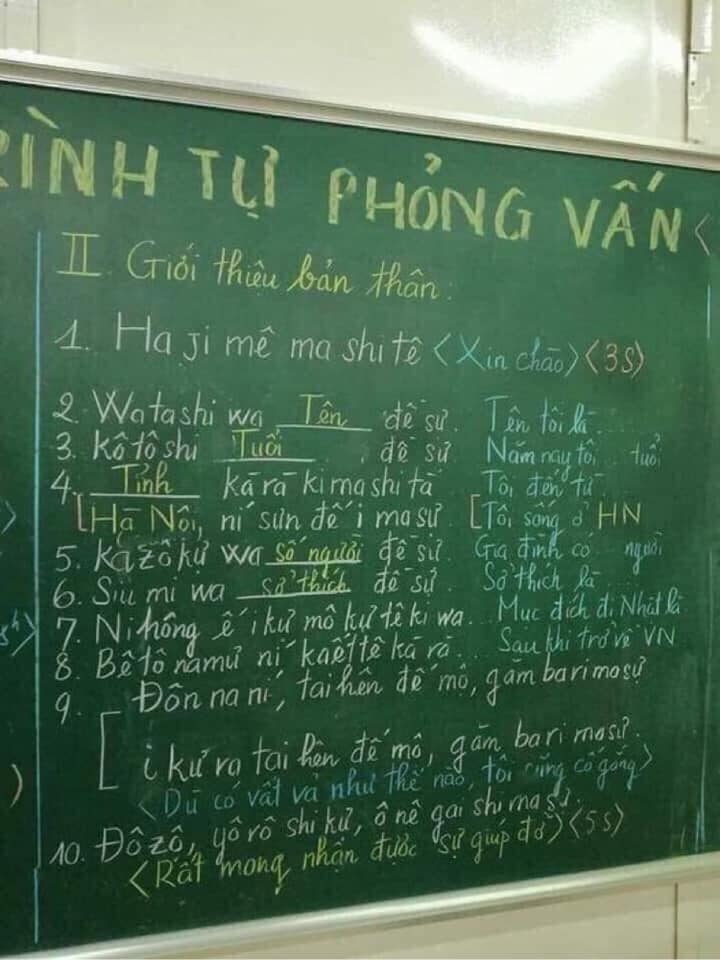 RÌNH TỰ PHỎNG VẤN <
II Giới thiệu bản thân:
1. Ha ji mê ma shi tê <Xin chào> <3s>
2. Watashi wa Tên đề sư. Tên tôi là....
3. Kô tô shi Tuổi đề sư Năm nay tôi... tuổi
4. Tỉnh kā rā ki ma shi tà Tôi đến từ
[Hà Nội, ní sưn đế i ma sư. [Tôi sống ở HN
5. Ka zô kư wa số người đề sư. Gia đình có ... người
6. Siu mi wa sở thích đề sự. Sở thích là ...
7. Ni hông ế i kư mô kự tê ki wa... Mục đích đi Nhật là
8. Bê tô namư ní kaết tê kā rā... Sau khi trở về VN
9. Đôn na ní, tai hên đế mô, găm ba ri ma sự
[ i kư ra tai hên đế mô, găm ba ri ma sư.
<Dù có vất vả như thế nào, tôi cũng cố gắng>
10. Đô zô, yô rô shi kư, ô nê gai shi ma sư. <5s>
<Rất mong nhận được sự giúp đỡ>